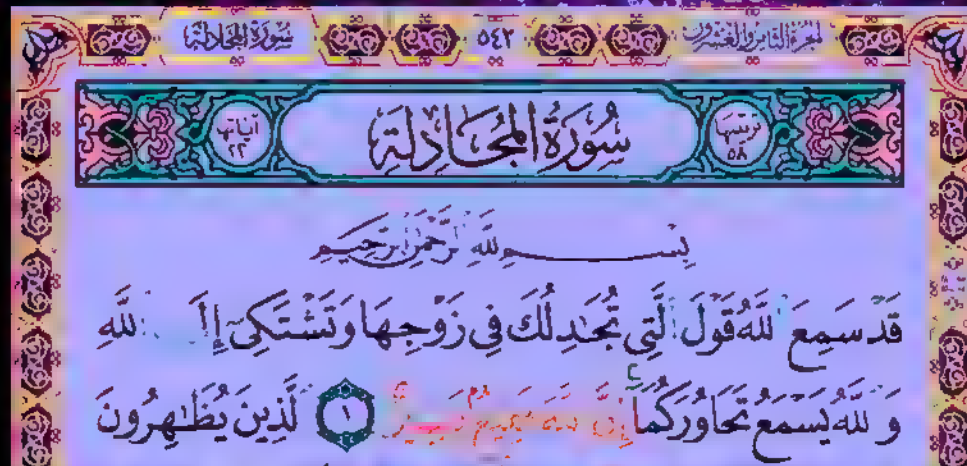 الجزء الثامن والعشرون ٥٤٢ سورة المجادلة
ترتيبها ٥٨ سُورَةُ المُجَادِلَةِ آياتها ٢٢
بِسْمِ اللَّهِ الرَّحْمَٰنِ الرَّحِيمِ
قَدْ سَمِعَ ٱللَّهُ قَوْلَ ٱلَّتِي تُجَٰدِلُكَ فِي زَوْجِهَا وَتَشْتَكِيٓ إِلَى ٱللَّهِ
وَٱللَّهُ يَسْمَعُ تَحَاوُرَكُمَآ إِنَّ ٱللَّهَ سَمِيعٌۢ بَصِيرٌ ١ ٱلَّذِينَ يُظَٰهِرُونَ